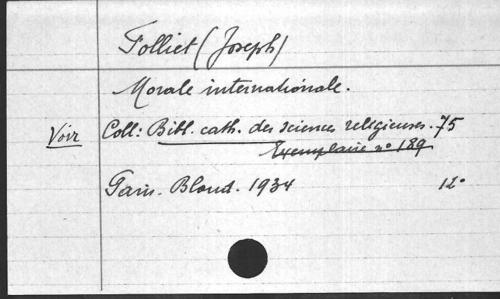 Folliet (Joseph)
Morale internationale.
Voir Coll: Bibl. cath. des sciences religieuses. 75
Exemplaire nº 189
Paris. Bloud. 1934 12º